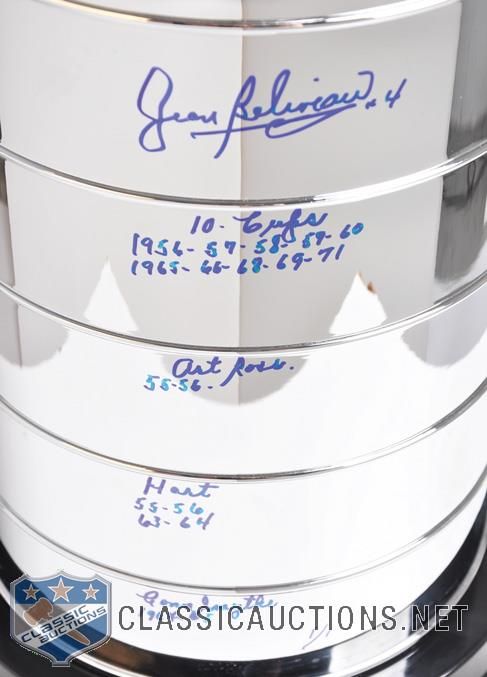 Jean Beliveau #4
10 - Cups
1956 - 57 - 58 - 59 - 60
1965 - 66 - 68 - 69 - 71
Art Ross.
55-56 -
Hart
55-56
63-64
Conn Smythe
1/1
CLASSIC
AUCTIONS
CLASSICAUCTIONS.NET